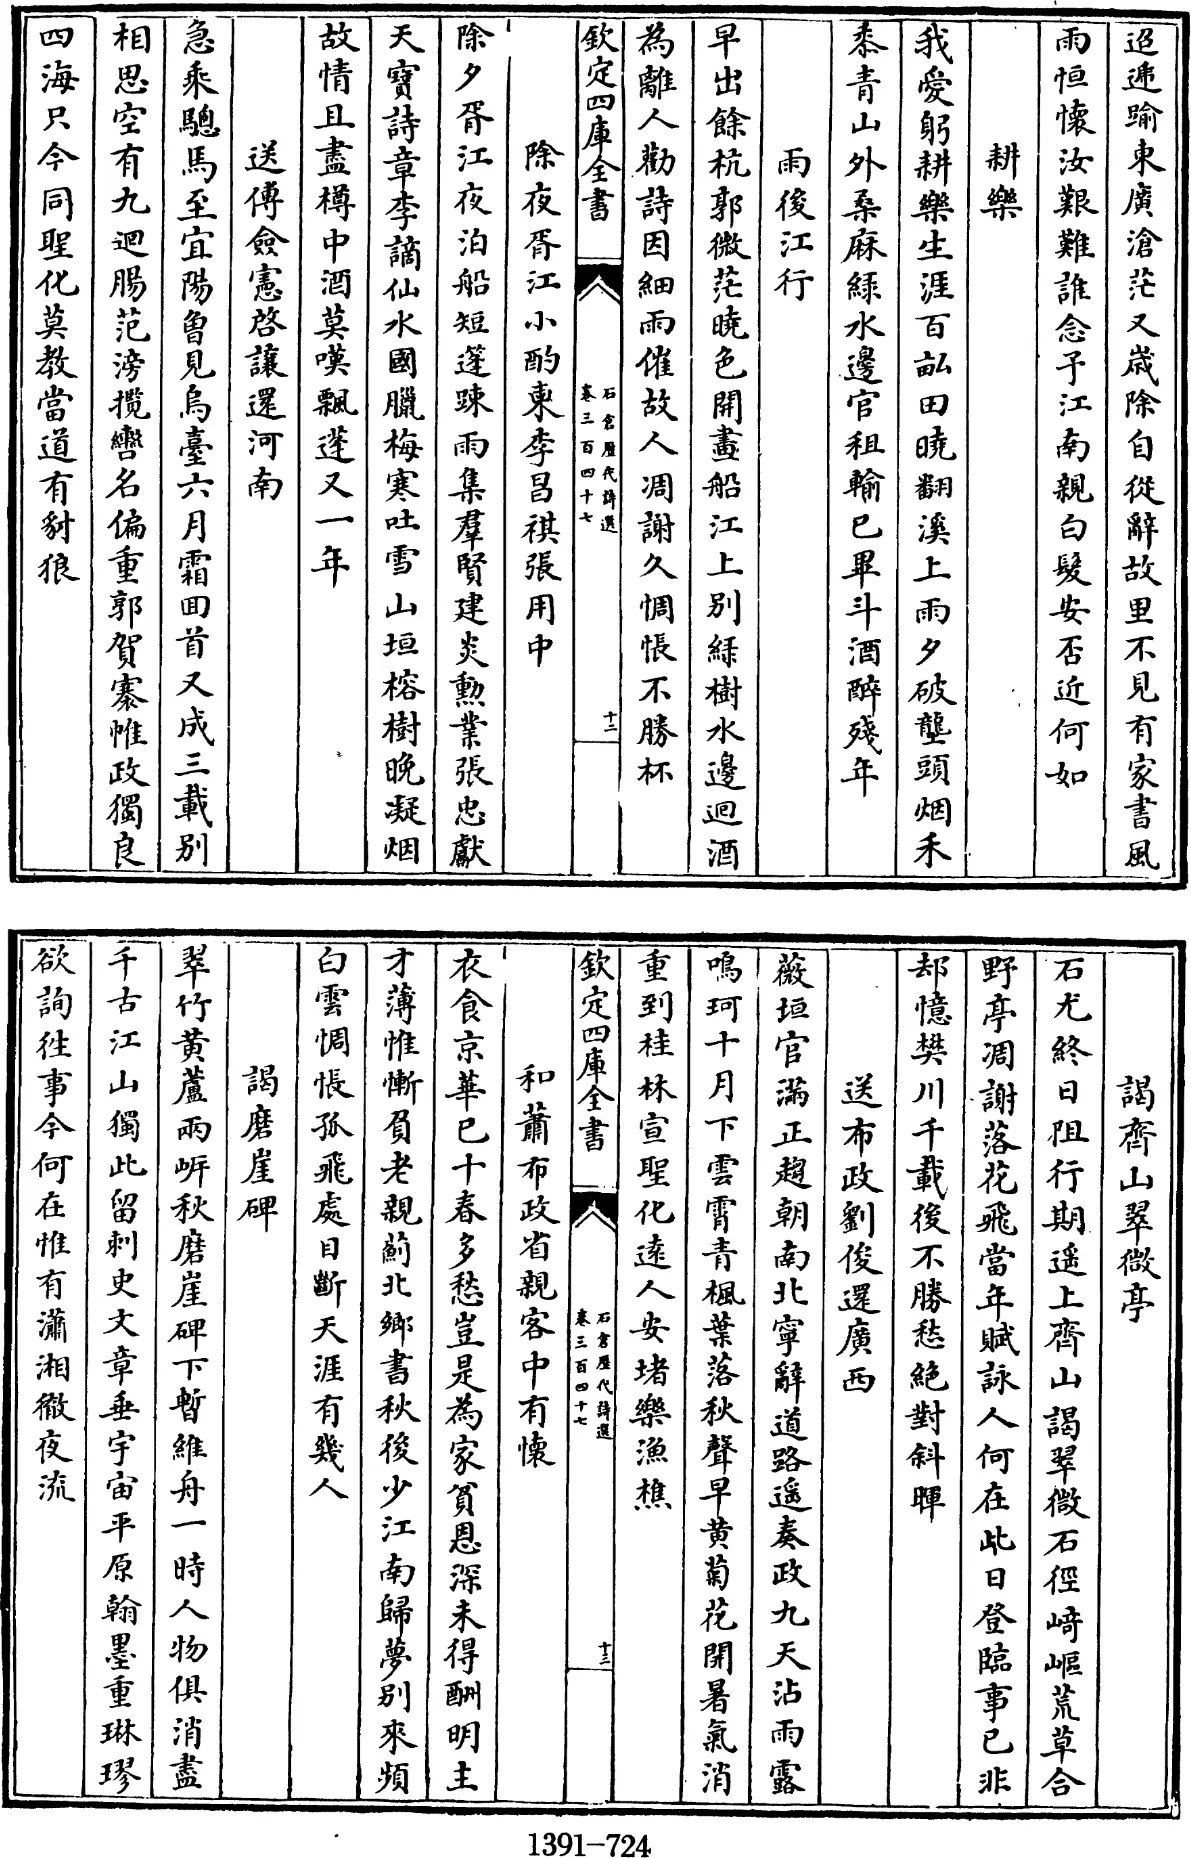 迢遞踰東廣滄茫又歲除自從辭故里不見有家書風
雨恒懷汝艱難誰念予江南親白髮安否近何如
耕樂
我愛躬耕樂生涯百畝田曉翻溪上雨夕破壟頭烟禾
黍青山外桑麻綠水邊官租輸已畢斗酒醉殘年
雨後江行
早出餘杭郭微茫曉色開畫船江上别綠樹水邊迴酒
為離人勸詩因細雨催故人凋謝久惆悵不勝杯
欽定四庫全書
石倉歷代詩選
卷三百四十七
十二
除夜胥江小酌柬李昌祺張用中
除夕胥江夜泊船短蓬踈雨集羣賢建炎勲業張忠獻
天寶詩章李謫仙水國臘梅寒吐雪山垣榕樹晚凝烟
故情且盡樽中酒莫嘆飄蓬又一年
送傅僉憲啓讓還河南
急乘驄馬至宜陽曾見烏臺六月霜回首又成三載别
相思空有九迴腸范滂攬轡名偏重郭賀褰帷政獨良
四海只今同聖化莫教當道有豺狼
謁齊山翠微亭
石尤終日阻行期遥上齊山謁翠微石徑崎嶇荒草合
野亭凋謝落花飛當年賦詠人何在此日登臨事已非
却憶樊川千載後不勝愁絶對斜暉
送布政劉俊還廣西
薇垣官滿正趨朝南北寧辭道路遥奏政九天沾雨露
鳴珂十月下雲霄青楓葉落秋聲早黄菊花開暑氣消
重到桂林宣聖化逺人安堵樂漁樵
欽定四庫全書
石倉歷代詩選
卷三百四十七
十三
和蕭布政省親客中有懷
衣食京華已十春多愁豈是為家貧恩深未得酬明主
才薄惟慚負老親薊北鄉書秋後少江南歸夢别來頻
白雲惆悵孤飛處目斷天涯有幾人
謁磨崖碑
翠竹黄蘆兩岍秋磨崖碑下暫維舟一時人物俱消盡
千古江山獨此留刺史文章垂宇宙平原翰墨重琳璆
欲詢往事今何在惟有瀟湘徹夜流
1391-724